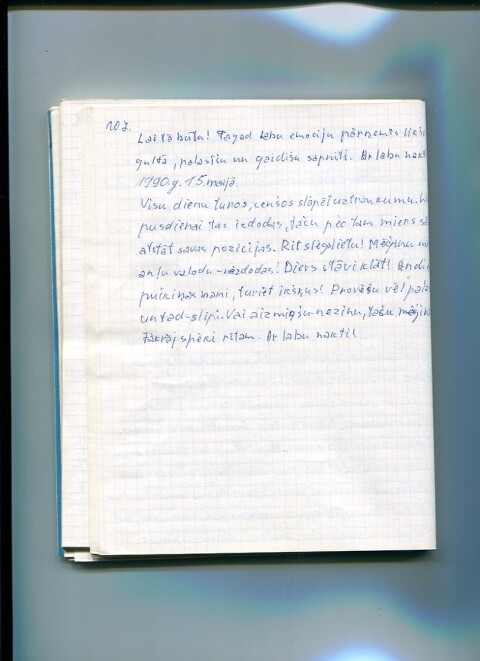 107.
Lai tā būtu! Tagad labu emociju pārņemts liešo
gultā, palasīšu un gaidīšu sapnīti. Ar labu nakt
1990.g. 15. maijā.
Visu dienu tunos, cenšos slāpēt uztraukumu.
pusdienai tas izdodas, taču pēc tam miers sā
atstāt savas pozicijas. Rīt slēgalietu! Mēģinu
valodu - neizdodas! Dievs stāvi klāt! Andi
puiši par mani, turiet īkšķus! Provēšu vēl pala
un tad - slīpi. Vai aizmigšu - nezinu, taču
spēki rītam. Ar labu nakti!